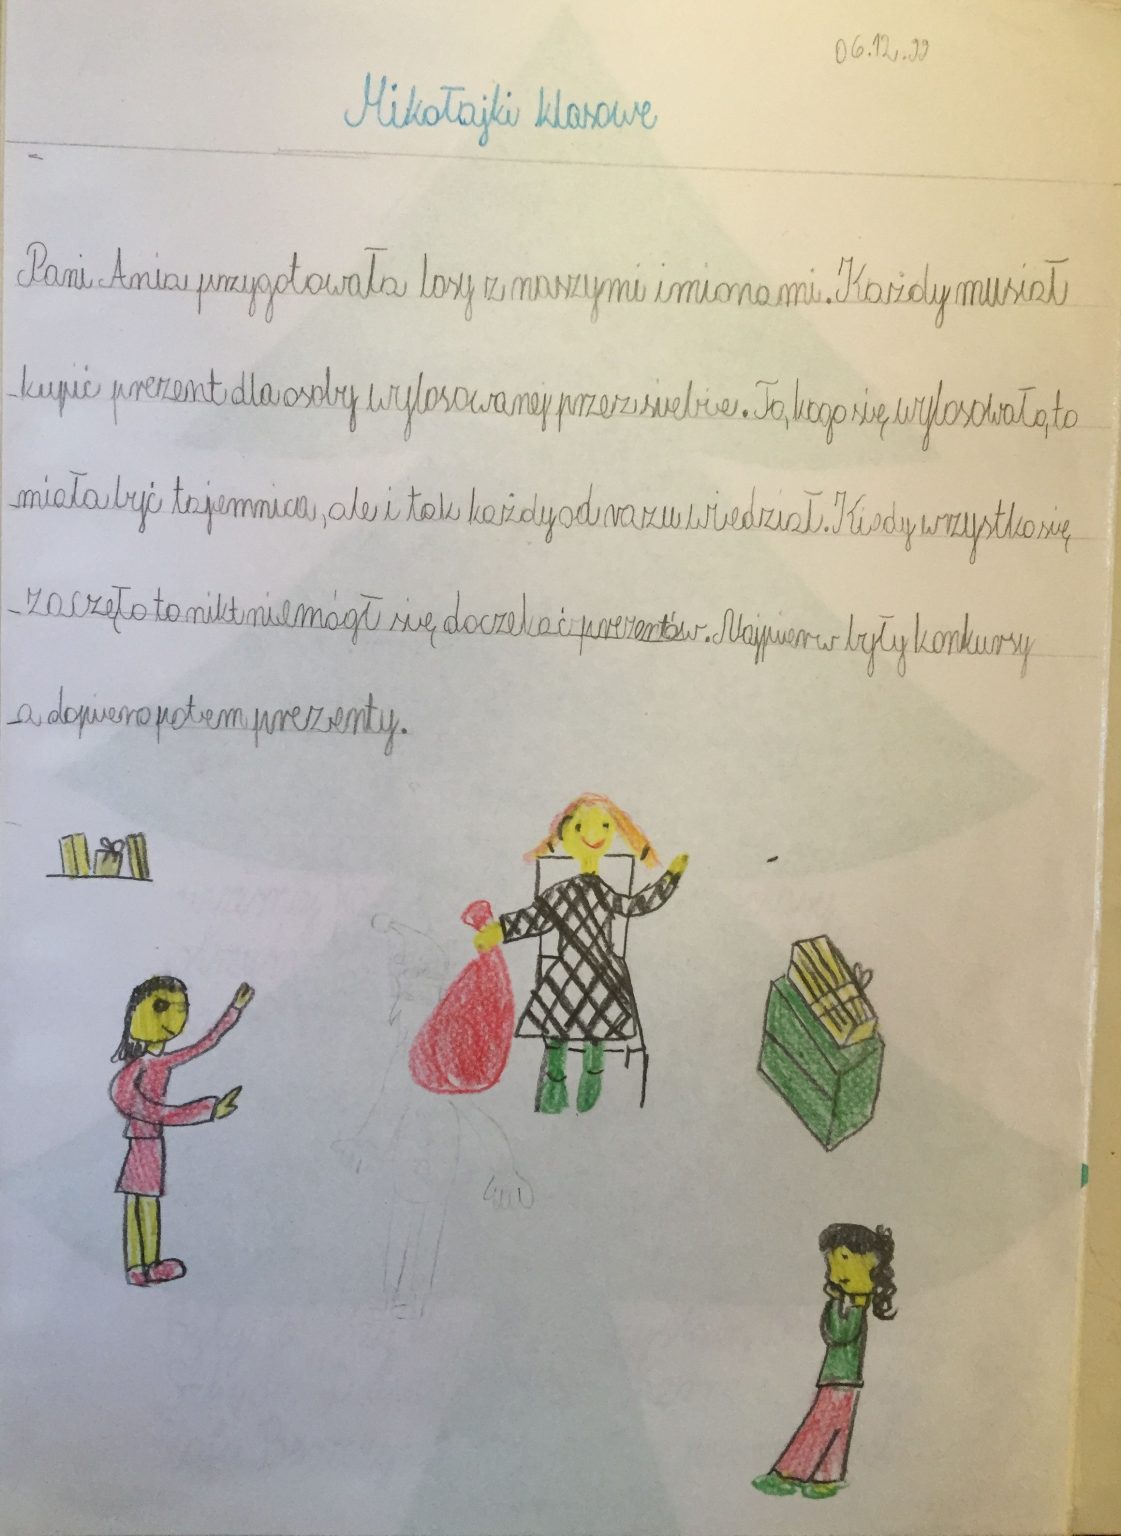 06.12.99
Mikołajki klasowe
Pani Ania przygotowała losy z naszymi imionami. Każdy musiał
kupić prezent dla osoby wylosowanej przez siebie. To, kogo się wylosowało, to
miała być tajemnica, ale i tak każdy od razu wiedział. Kiedy wszystko się
zaczęło to nikt nie mógł się doczekać prezentów. Najpierw były konkursy
a dopiero potem prezenty.